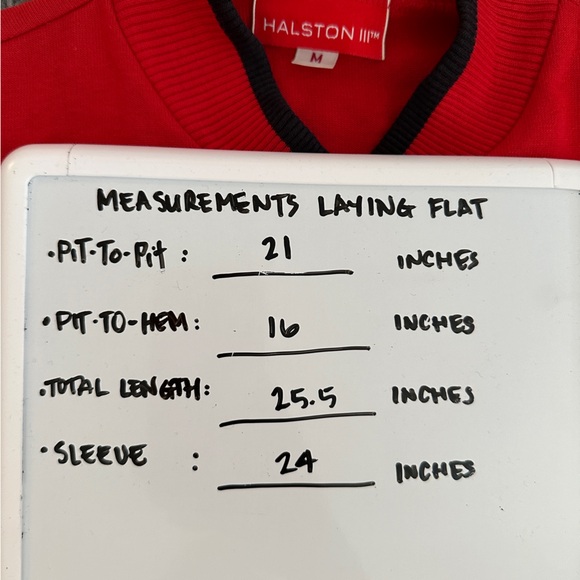 HALSTON III™
M
MEASUREMENTS LAYING FLAT
• PIT-TO-Pit : 21 INCHES
• PIT-TO-HEM : 16 INCHES
• TOTAL LENGTH : 25.5 INCHES
• SLEEVE : 24 INCHES